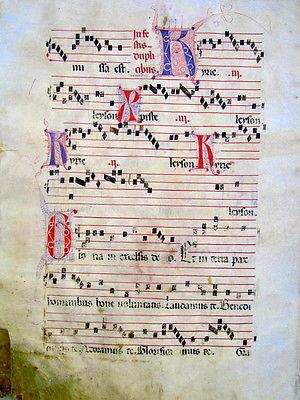 In fe
stis
dupli
mi ssa est. cibus. Kyrie. iij.
leyson Xpiste .iij. leyson.
Kyrie .iij. leyson Kyrie
leyson.
Glo ria in excelsis de o. Et in terra pax
hominibus bone voluntatis. Laudamus te. Benedi
te. Adoramus te. Glorifica mus te. Gra